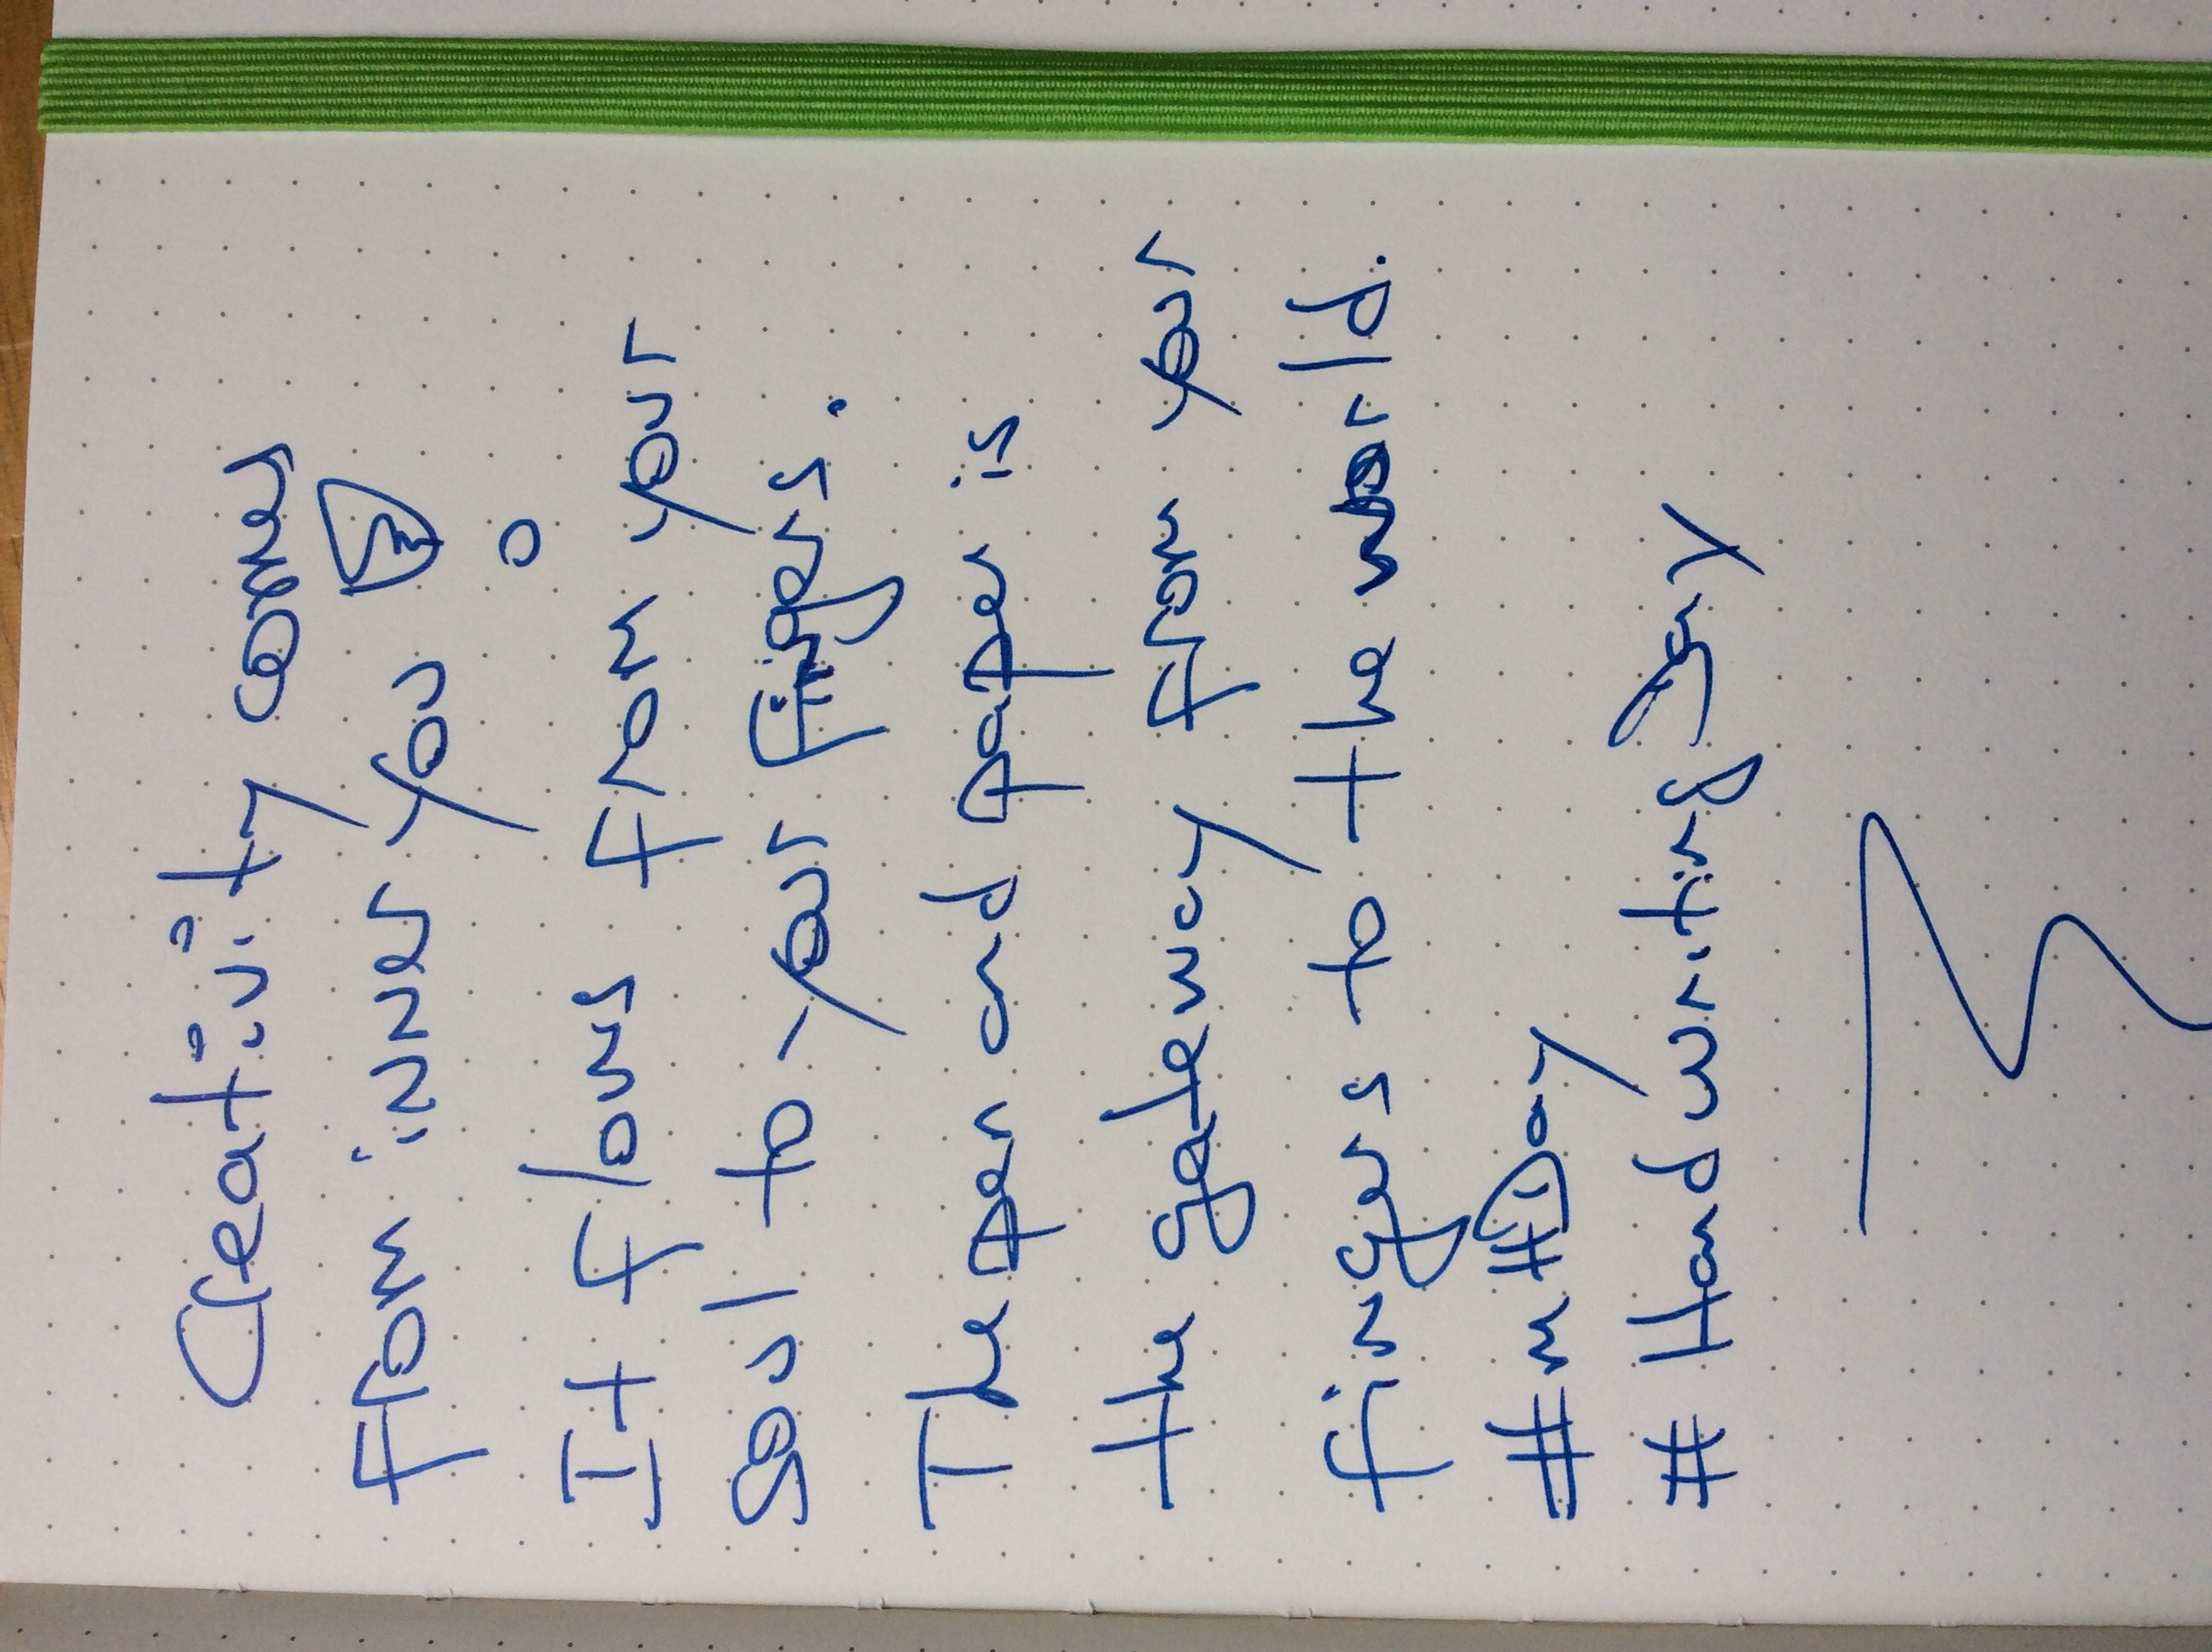 Creativity comes
from inner you!
It flows from your
soul to your fingers.
The pen and paper is
the gateway from your
fingers to the world.
#mHDay
# HandwritingDay